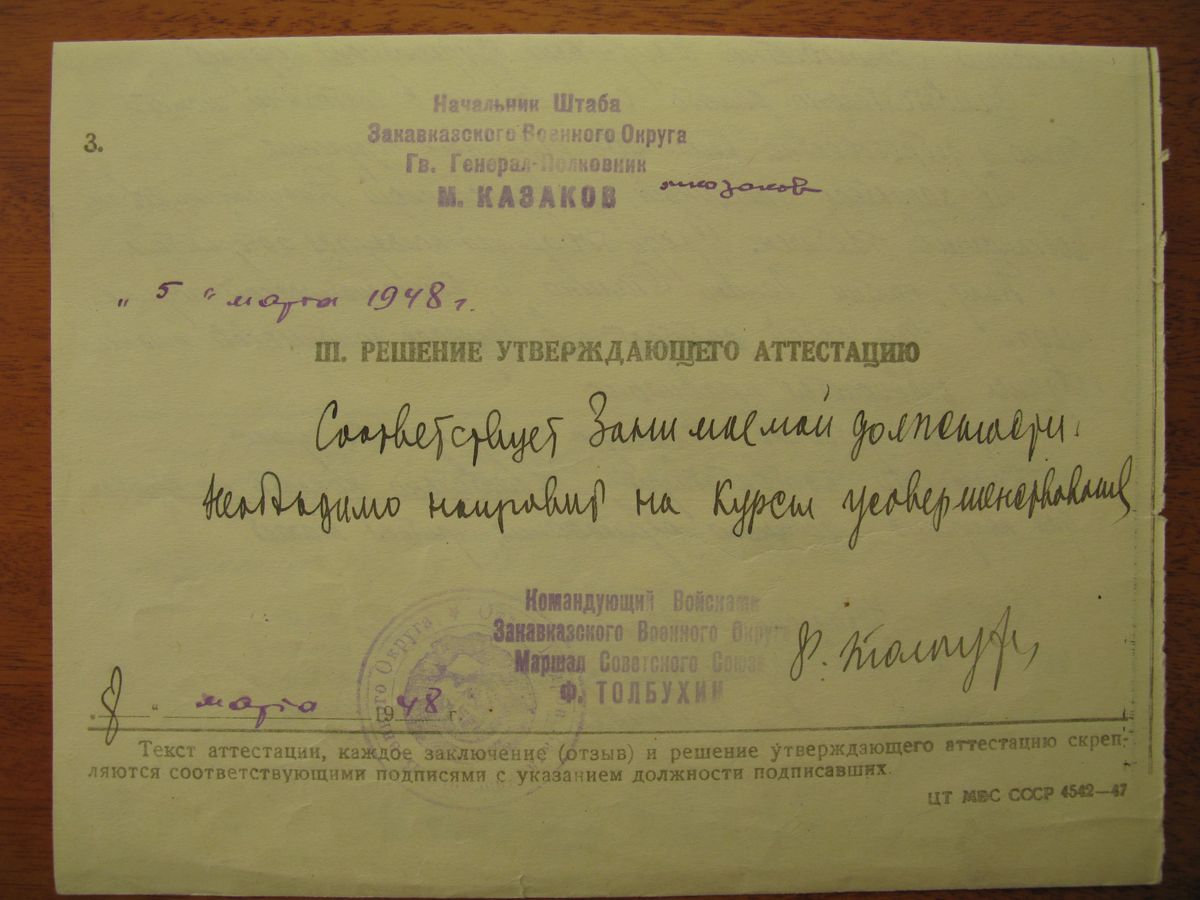 3.
Начальник Штаба
Закавказского Военного Округа
Гв. Генерал-Полковник
М. КАЗАКОВ мказаков
„ 5 “ марта 1948 г.
III. РЕШЕНИЕ УТВЕРЖДАЮЩЕГО АТТЕСТАЦИЮ
Соответствует Занимаемой должности.
Необходимо направить на Курсы усовершенствования
Командующий Войсками
Закавказского Военного Округа
Маршал Советского Союза
Ф. ТОЛБУХИН
Ф. Толбухин
„8“ марта 1948 г.
Округа
Текст аттестации, каждое заключение (отзыв) и решение утверждающего аттестацию скреп-
ляются соответствующими подписями с указанием должности подписавших.
ЦТ МВС СССР 4542—47